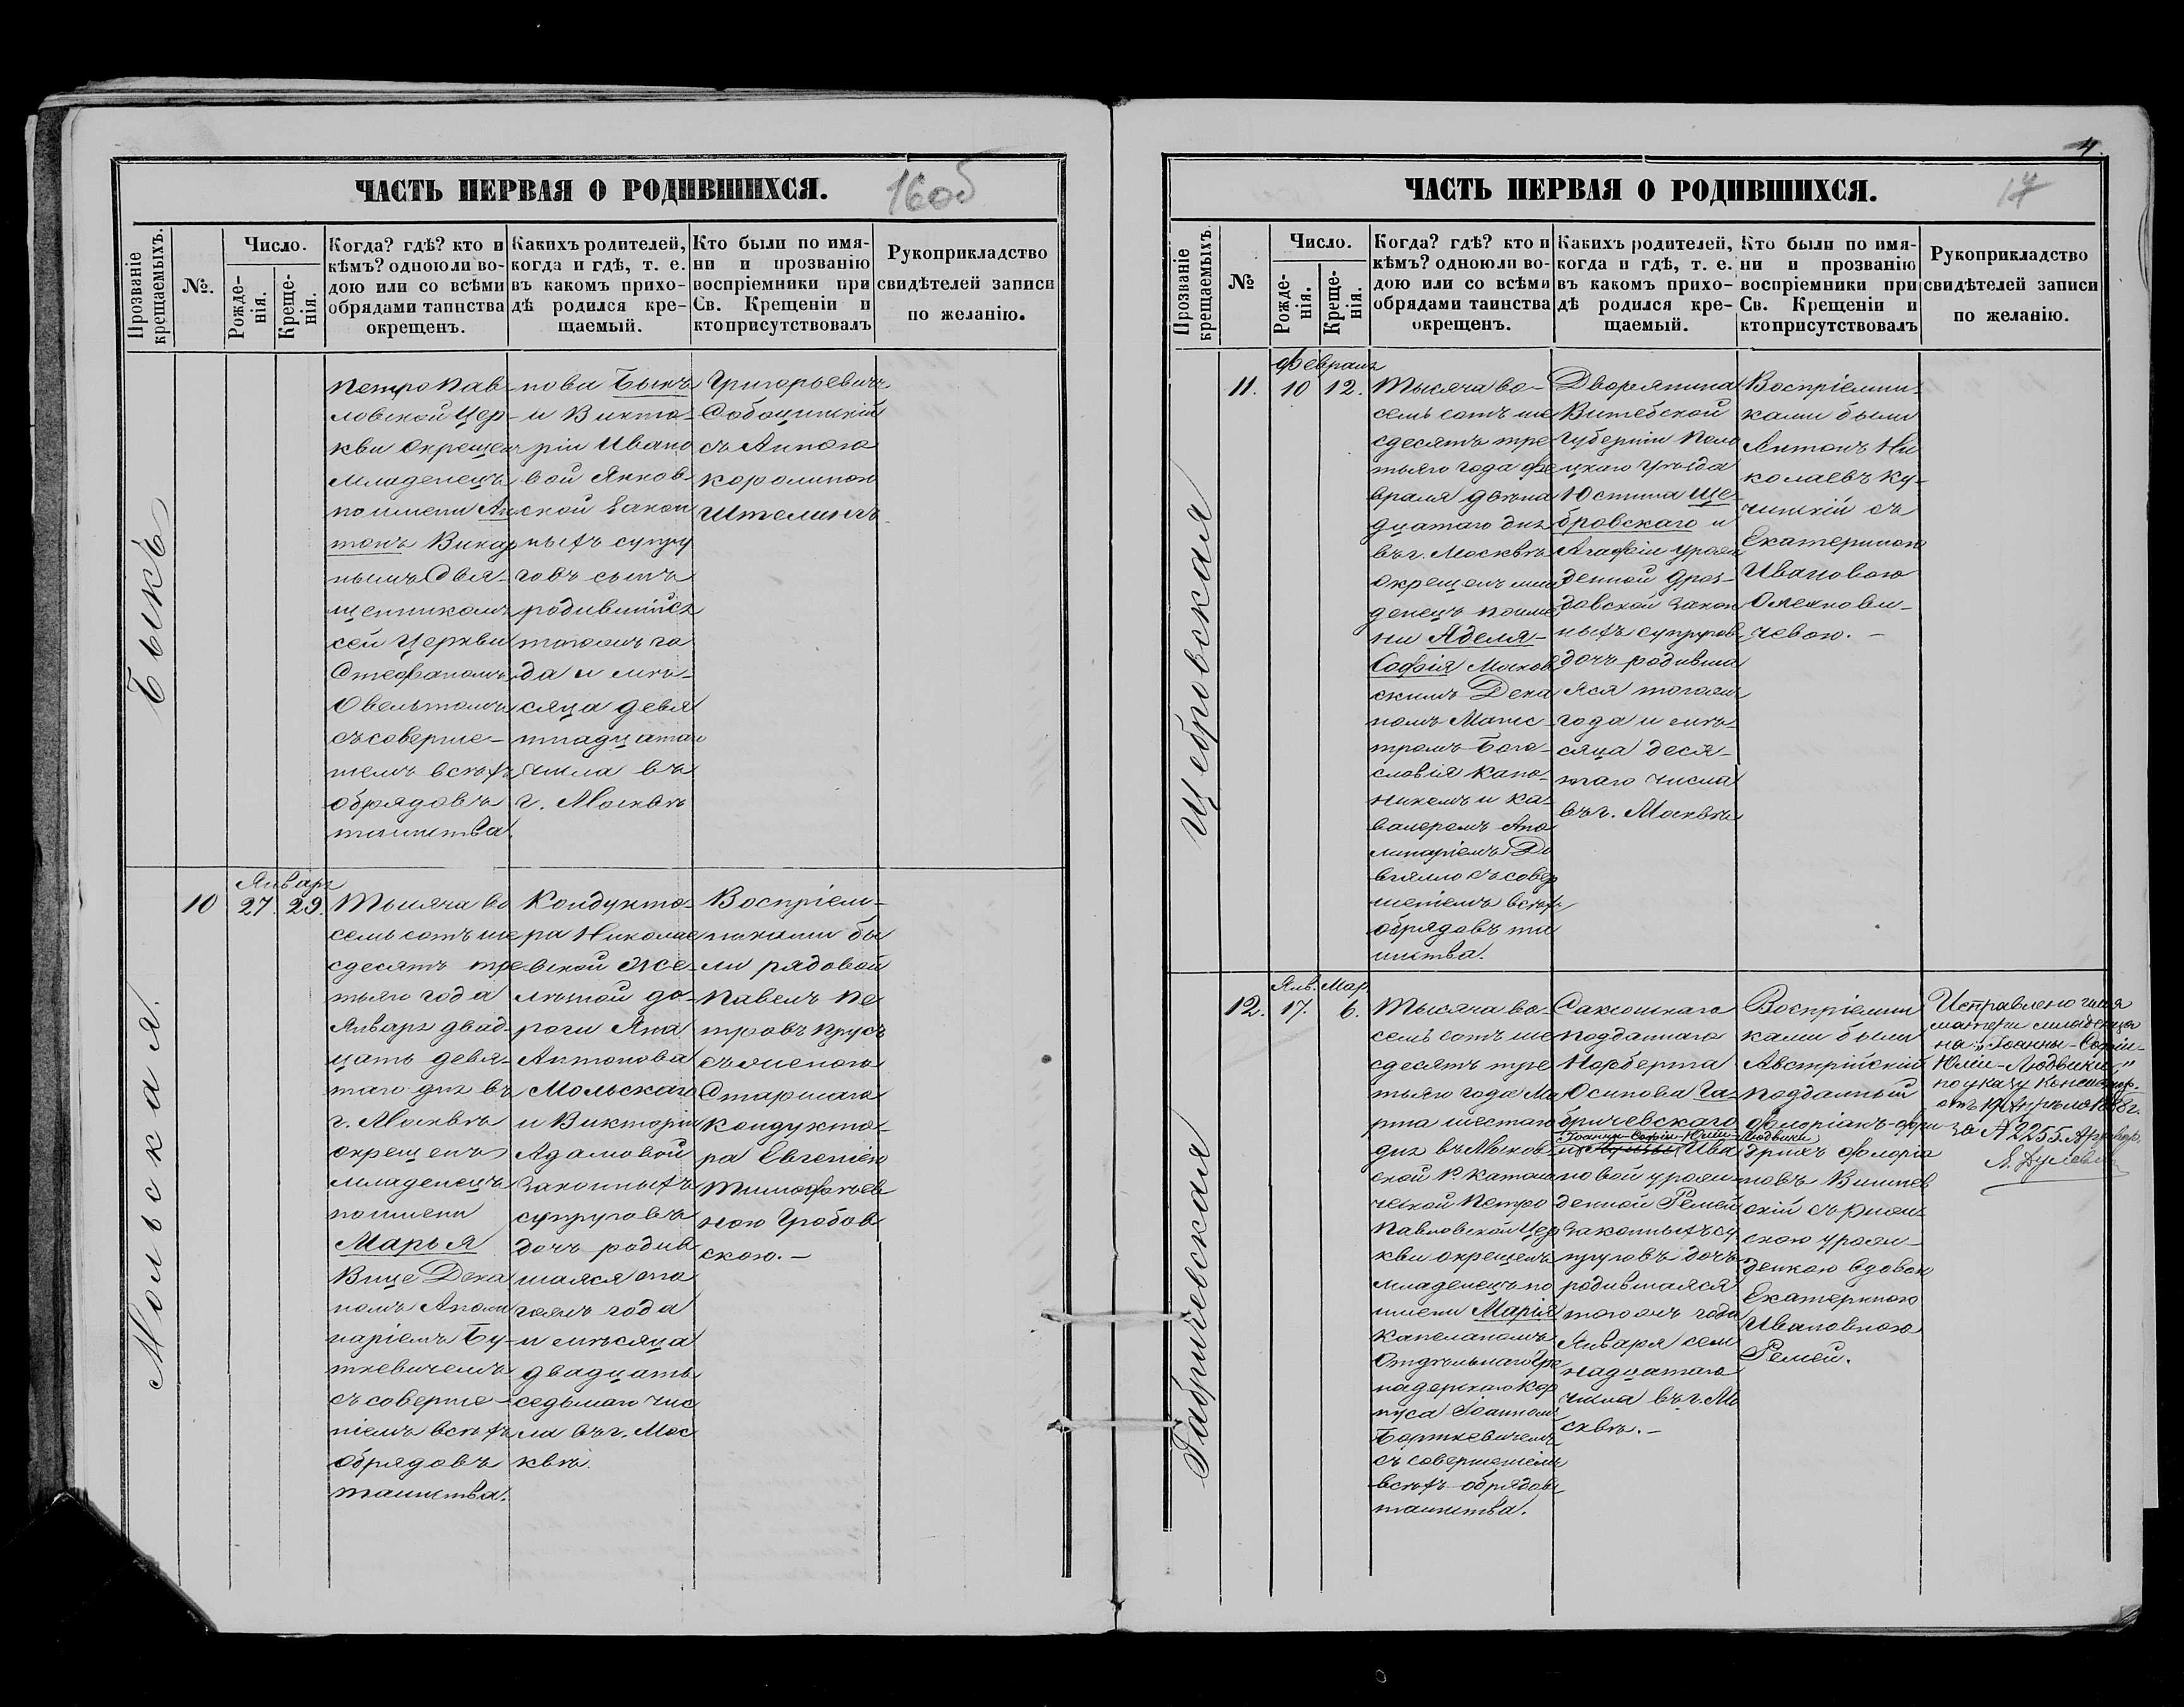 ЧАСТЬ ПЕРВАЯ О РОДИВШИХСЯ.
16об
Прозваніе крещаемыхъ.
№.
Число.
Рожде-
нія.
Креще-
нія.
Когда? гдѣ? кто и
кѣмъ? одною ли во-
дою или со всѣми
обрядами таинства
окрещенъ.
Какихъ родителей,
когда и гдѣ, т. е.
въ какомъ прихо-
дѣ родился кре-
щаемый.
Кто были по имя-
ни и прозванію
воспріемники при
Св. Крещеніи и
кто присутствовалъ
Рукоприкладство
свидѣтелей записи
по желанію.
Быкъ
Петропав-
ловской Цер-
кви окрещенъ
младенецъ
по имени Ан-
тонъ Викар
нымъ Свя-
щенникомъ
сей Церкви
Стефаномъ
Овельтомъ
съ соверше-
ніемъ всѣхъ
обрядовъ
таинства.
нова Быкъ
и Викто-
ріи Ивано
вой Янков-
ской закон
ныхъ супру
говъ сынъ
родившійся
тогожъ го
да и мѣ-
сяца девя
тнадцатаго
числа въ
г. Москвѣ
Григорьевичъ
Собоцинскій
съ Анною
Королиною
Штелингъ
Мольская.
10
Январь
27. 29.
Тысяча во
семь сотъ ше
сдесятъ тре
тьяго года
Января двад-
цать девя-
таго дня въ
г. Москвѣ
окрещенъ
младенецъ
по имени
Марья
Вице Дека
номъ Аполи
наріемъ Бу-
ткевичемъ
съ соверше-
ніемъ всѣхъ
обрядовъ
таинства.
Кондукто-
ра Николае
вской Же-
лѣзной до-
роги Яна
Антонова
Мольскаго
и Викторіи
Адамовой
законныхъ
супруговъ
дочь родив
шаяся то
гожъ года
и мѣсяца
двадцать
седьмаго чис
ла въ г. Мос
квѣ.
Воспріем-
никами бы
ли рядовой
Павелъ Пе
тровъ Прусъ
съ женою
Старшаго
Кондукто-
ра Евгенію
Тимофѣев
ною Гробов
скою.-
4.
ЧАСТЬ ПЕРВАЯ О РОДИВШИХСЯ.
17
Прозваніе крещаемыхъ.
№
Число.
Рожде-
нія.
Креще-
нія.
Когда? гдѣ? кто и
кѣмъ? одною ли во-
дою или со всѣми
обрядами таинства
окрещенъ.
Какихъ родителей,
когда и гдѣ, т. е.
въ какомъ прихо-
дѣ родился кре-
щаемый.
Кто были по имя-
ни и прозванію
воспріемники при
Св. Крещеніи и
кто присутствовалъ
Рукоприкладство
свидѣтелей записи
по желанію.
Щебровская
11.
Февраля
10 12.
Тысяча во-
семь сотъ ше
сдесятъ тре
тьяго года Фе
враля двѣна
дцатаго дня
въ г. Москвѣ
окрещенъ мла
денецъ по име
ни Аделя-
Софія Москов
скимъ Дека
номъ Магис
тромъ Бого-
словія Кано-
никомъ и Ка-
валеромъ Апо
линаріемъ До
вгялло съ совер
шеніемъ всѣхъ
обрядовъ та
инства.
Дворянина
Витебской
Губерніи Поло
цкаго уѣзда
Юстина Ще-
бровскаго и
Агафіи урож
денной Дроз-
довской закон
ныхъ супругов
дочь родивша
яся тогожъ
года и мѣ-
сяца деся-
таго числа
въ г. Москвѣ
Воспріемни-
ками были
Антонъ Ни
колаевъ Ку-
чинскій съ
Екатериною
Ивановою
Олехнови-
чевою.-
Габричевская
12.
Янв. Мар.
17. 6.
Тысяча во-
семь сотъ ше
сдесятъ тре
тьяго года Ма
рта шестаго
дня въ Москов
ской Р. Католи
ческой Петро
Павловской Цер
кви окрещенъ
младенецъ по
имени Марія
Капеланомъ
Отдѣльнаго Гре
надерскаго Кор
пуса Іоанномъ
Борткевичемъ
съ совершеніемъ
всѣхъ обрядовъ
таинства.
Саксонскаго
подданнаго
Норберта
Осипова Га-
бричевскаго
Іоанны-Софіи-Юліи-Людвики
и Ива
новой урож
денной Релей
законныхъ су
пруговъ дочь
родившаяся
тогожъ года
Января сем
надцатаго
числа въ г. Мо
сквѣ.-
Воспріемни
ками были
Австрійскій
подданный
Флоріанъ-Фри
дрихъ Флоріа
новъ Вишнев
скій съ
скою урож-
денною вдовою
Екатериною
Ивановною
Релей.
Исправлено имя
матери младенца
на "Іоанны-Софіи-
Юліи-Людвики"
по указу Консистор.
отъ 19 Апрѣля 1888 г.
за № 2255.